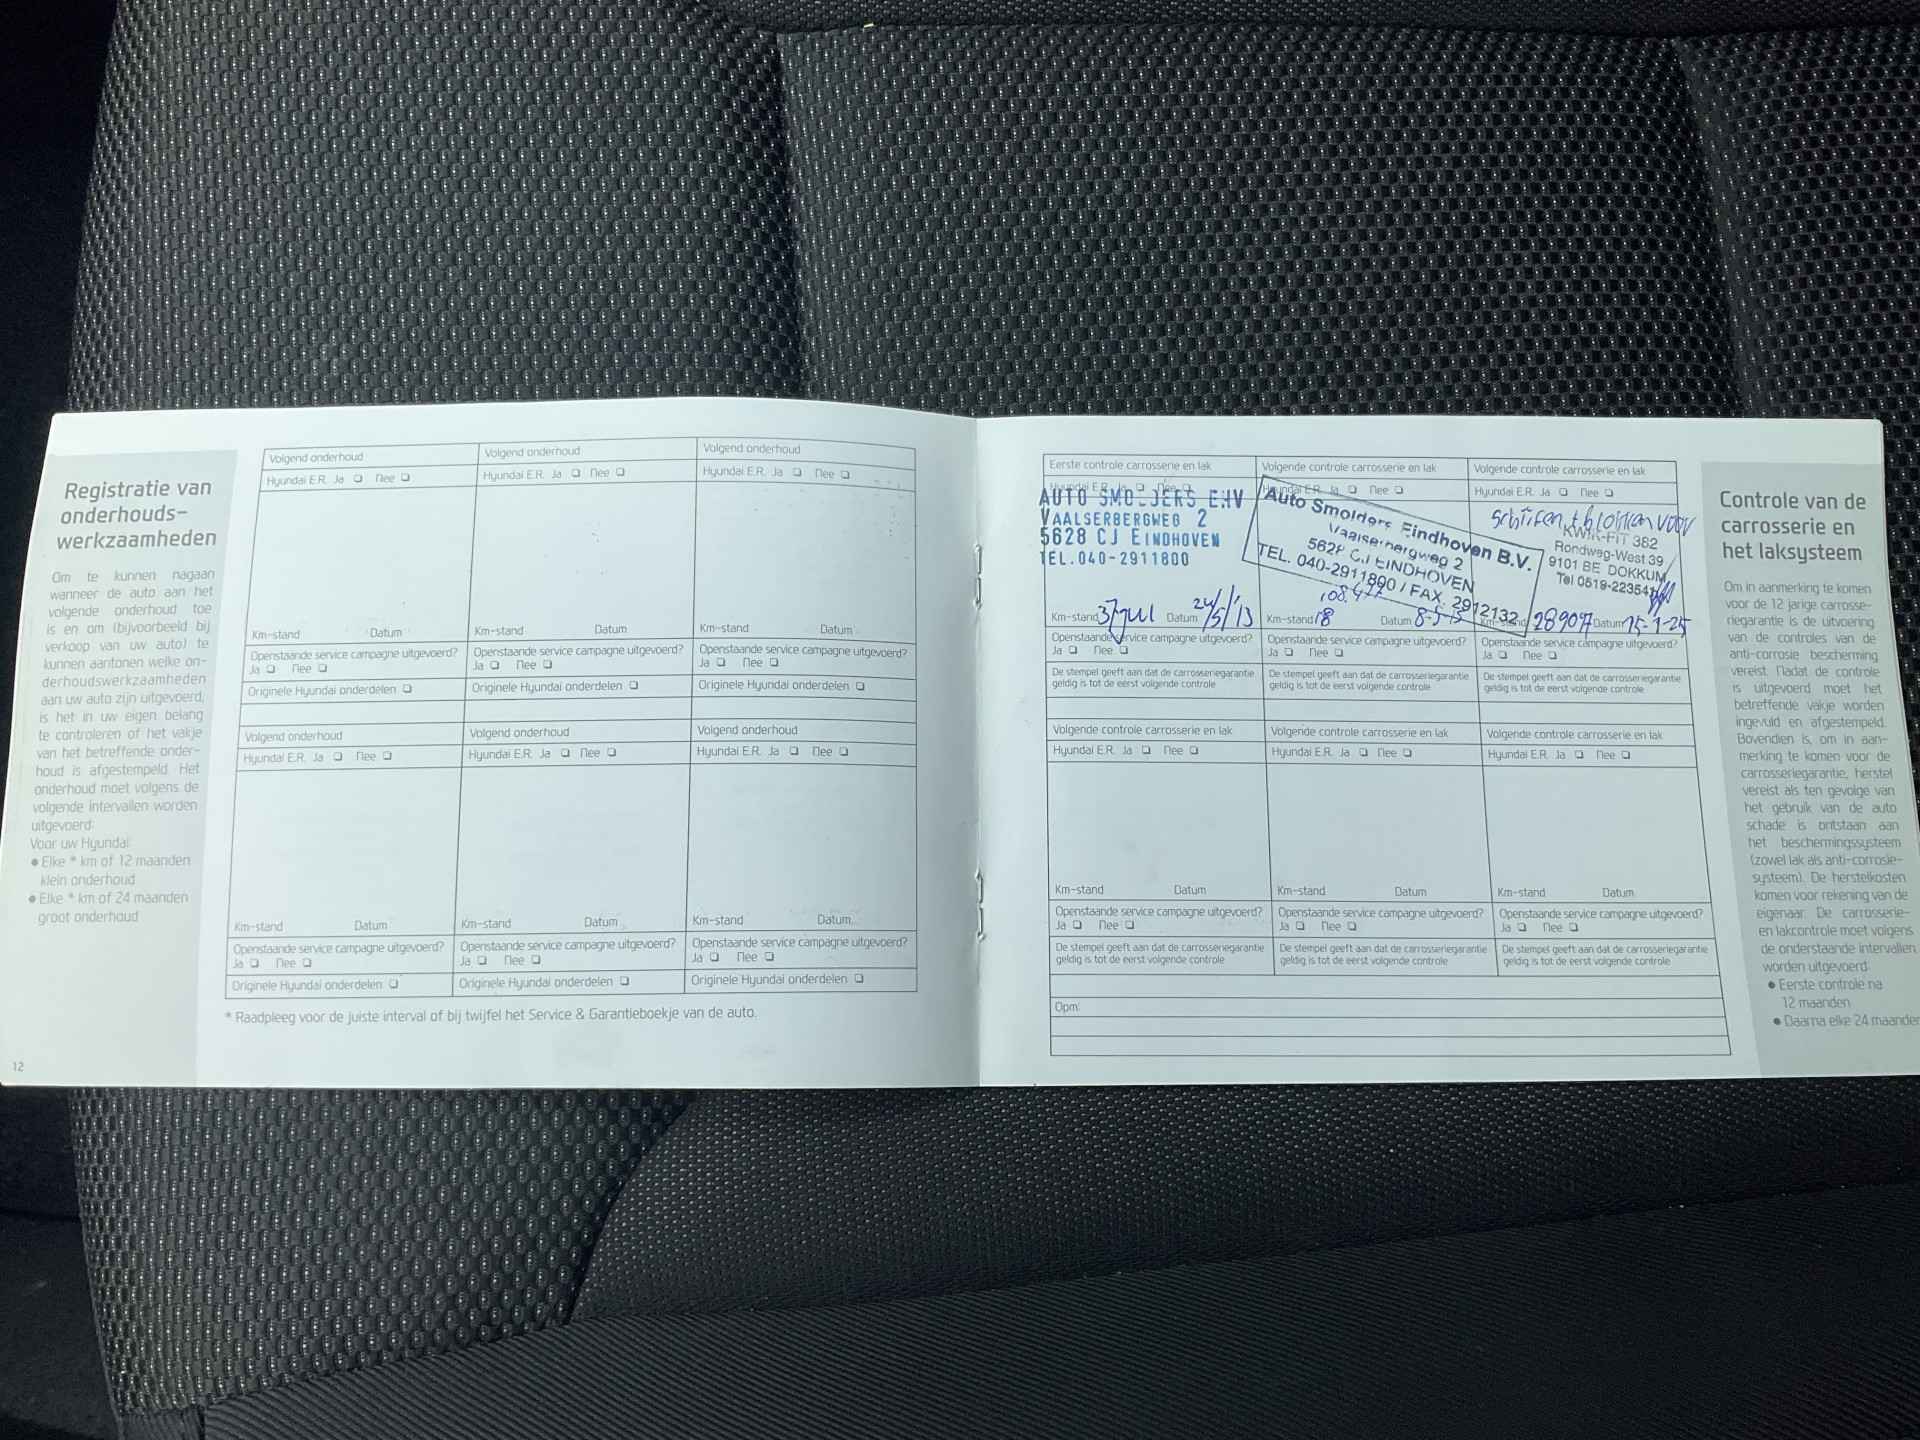 Registratie van
onderhouds-
werkzaamheden
Om te kunnen nagaan
wanneer de auto aan het
volgende onderhoud toe
is en om (bijvoorbeeld bij
verkoop van uw auto) te
kunnen aantonen welke on-
derhoudswerkzaamheden
aan uw auto zijn uitgevoerd,
is het in uw eigen belang
te controleren of het vakje
van het betreffende onder-
houd is afgestempeld. Het
onderhoud moet volgens de
volgende intervallen worden
uitgevoerd:
Voor uw Hyundai:
● Elke * km of 12 maanden
klein onderhoud
● Elke * km of 24 maanden
groot onderhoud
12
Volgend onderhoud Volgend onderhoud Volgend onderhoud
Hyundai E.R. Ja ❏ Nee ❏ Hyundai E.R. Ja ❏ Nee ❏ Hyundai E.R. Ja ❏ Nee ❏
Km-stand Datum Km-stand Datum Km-stand Datum
Openstaande service campagne uitgevoerd? Openstaande service campagne uitgevoerd? Openstaande service campagne uitgevoerd?
Ja ❏ Nee ❏ Ja ❏ Nee ❏ Ja ❏ Nee ❏
Originele Hyundai onderdelen ❏ Originele Hyundai onderdelen ❏ Originele Hyundai onderdelen ❏
Volgend onderhoud Volgend onderhoud Volgend onderhoud
Hyundai E.R. Ja ❏ Nee ❏ Hyundai E.R. Ja ❏ Nee ❏ Hyundai E.R. Ja ❏ Nee ❏
Km-stand Datum Km-stand Datum Km-stand Datum
Openstaande service campagne uitgevoerd? Openstaande service campagne uitgevoerd? Openstaande service campagne uitgevoerd?
Ja ❏ Nee ❏ Ja ❏ Nee ❏ Ja ❏ Nee ❏
Originele Hyundai onderdelen ❏ Originele Hyundai onderdelen ❏ Originele Hyundai onderdelen ❏
* Raadpleeg voor de juiste interval of bij twijfel het Service & Garantieboekje van de auto.
Eerste controle carrosserie en lak
Hyundai E.R. Ja ❏ Nee ❏
AUTO SMOLDERS EHV
VAALSERBERGWEG 2
5628 CJ EINDHOVEN
TEL.040-2911800
Km-stand Datum 24/5/13
Openstaande service campagne uitgevoerd?
Ja ❏ Nee ❏
De stempel geeft aan dat de carrosseriegarantie
geldig is tot de eerst volgende controle
Volgende controle carrosserie en lak
Hyundai E.R. Ja ❏ Nee ❏
Auto Smolders Eindhoven B.V.
Vaalserbergweg 2
5628 CJ EINDHOVEN
TEL. 040-2911800 / FAX. 2912132
Km-stand Datum 8-5-15
Openstaande service campagne uitgevoerd?
Ja ❏ Nee ❏
De stempel geeft aan dat de carrosseriegarantie
geldig is tot de eerst volgende controle
Volgende controle carrosserie en lak
Hyundai E.R. Ja ❏ Nee ❏
voor
KWIK-FIT 382
Rondweg-West 39
9101 BE DOKKUM
Tel 0519-22354
Km-stand 289077 Datum 15-1-25
Openstaande service campagne uitgevoerd?
Ja ❏ Nee ❏
De stempel geeft aan dat de carrosseriegarantie
geldig is tot de eerst volgende controle
Volgende controle carrosserie en lak Volgende controle carrosserie en lak Volgende controle carrosserie en lak
Hyundai E.R. Ja ❏ Nee ❏ Hyundai E.R. Ja ❏ Nee ❏ Hyundai E.R. Ja ❏ Nee ❏
Km-stand Datum Km-stand Datum Km-stand Datum
Openstaande service campagne uitgevoerd? Openstaande service campagne uitgevoerd? Openstaande service campagne uitgevoerd?
Ja ❏ Nee ❏ Ja ❏ Nee ❏ Ja ❏ Nee ❏
De stempel geeft aan dat de carrosseriegarantie De stempel geeft aan dat de carrosseriegarantie De stempel geeft aan dat de carrosseriegarantie
geldig is tot de eerst volgende controle geldig is tot de eerst volgende controle geldig is tot de eerst volgende controle
Opm:
Controle van de
carrosserie en
het laksysteem
Om in aanmerking te komen
voor de 12 jarige carrosse-
riegarantie is de uitvoering
van de controles van de
anti-corrosie bescherming
vereist. Nadat de controle
is uitgevoerd moet het
betreffende vakje worden
ingevuld en afgestempeld.
Bovendien is, om in aan-
merking te komen voor de
carrosseriegarantie, herstel
vereist als ten gevolge van
het gebruik van de auto
schade is ontstaan aan
het beschermingssysteem
(zowel lak als anti-corrosie-
systeem). De herstelkosten
komen voor rekening van de
eigenaar. De carrosserie-
en lakcontrole moet volgens
de onderstaande intervallen
worden uitgevoerd:
● Eerste controle na
12 maanden
● Daarna elke 24 maanden